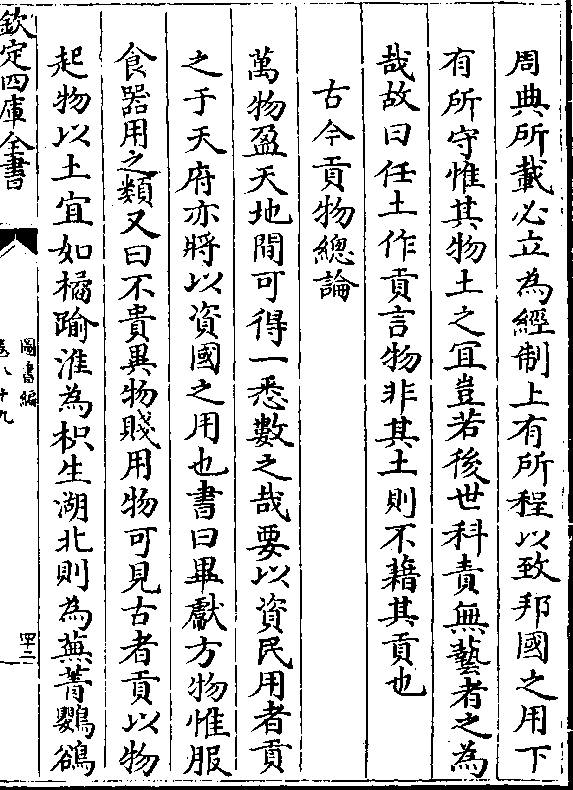 周典所載必立為經制上有所程以致邦國之用下
有所守惟其物土之宜豈若後世科責無藝者之為
哉故曰任土作貢言物非其土則不藉其貢也
古今貢物總論
萬物盈天地間可得一悉數之哉要以資民用者貢
之于天府亦將以資國之用也書曰畢獻方物惟服
食器用之類又曰不貴異物賤用物可見古者貢以物
起物以土宜如橘踰淮為枳生湖北則為蕪菁鸚鵒
欽定四庫全書
圖書編
卷八十九
四十三